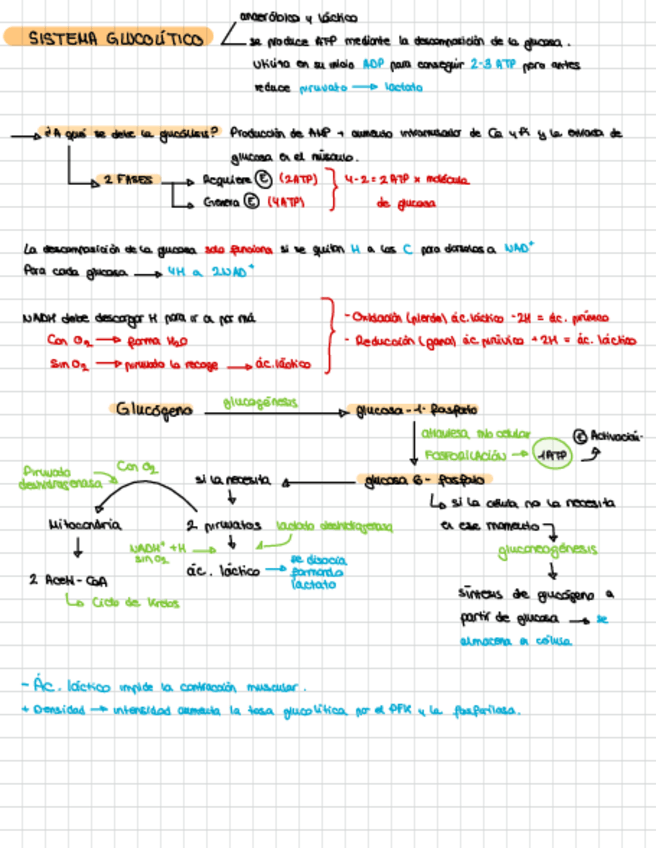 anaeróbico y láctico
SISTEMA GLUCOLÍTICO
se produce ATP mediante la descomposición de la glucosa.
Utiliza en su inicio ADP para conseguir 2-3 ATP pero antes
reduce piruvato → lactato
→ ¿A qué se debe la glucólisis? Producción de AMP + aumento intramuscular de Ca y Pi y la entrada de
glucosa en el músculo.
2 FASES → Requiere E (2ATP)
→ Genera E (4ATP)
4-2 = 2 ATP x molécula
de glucosa
La descomposición de la glucosa solo funciona si se quitan H a los C para dárselos a NAD+
Para cada glucosa → 4H a 2NAD+
NADH debe descargar H para ir a por más
Con O2 → forma H2O
Sin O2 → piruvato lo recoge → ác. láctico
- Oxidación (pierde) ác. láctico - 2H = ác. pirúvico
- Reducción (gana) ác. pirúvico + 2H = ác. láctico
Glucógeno glucogénesis → glucosa-1-fosfato
atraviesa mb celular
FOSFORILACIÓN → -1ATP
E Activación
glucosa 6-fosfato
si la necesita
Piruvato
deshidrogenasa
Con O2
Mitocondria
2 piruvatos
lactato deshidrogenasa
NADH+ + H →
sin O2
ác. láctico → se disocia
formando
lactato
2 Acetil-CoA
↳ Ciclo de Krebs
↳ si la célula no la necesita
en ese momento
gluconeogénesis
síntesis de glucógeno a
partir de glucosa → se
almacena en célula
- Ác. láctico impide la contracción muscular.
+ Densidad → intensidad aumenta la tasa glucolítica por el PFK y la fosforilasa.